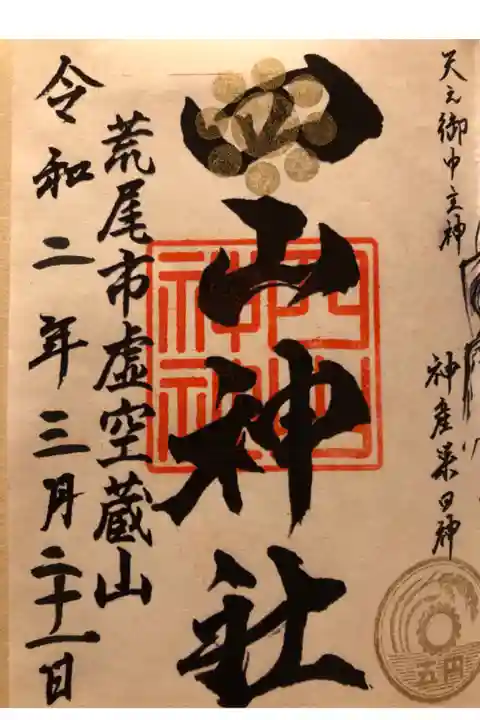 天之御中主神
神産巣日神
四山神社
四山神社
荒尾市虚空蔵山
令和二年三月二十一日
五円